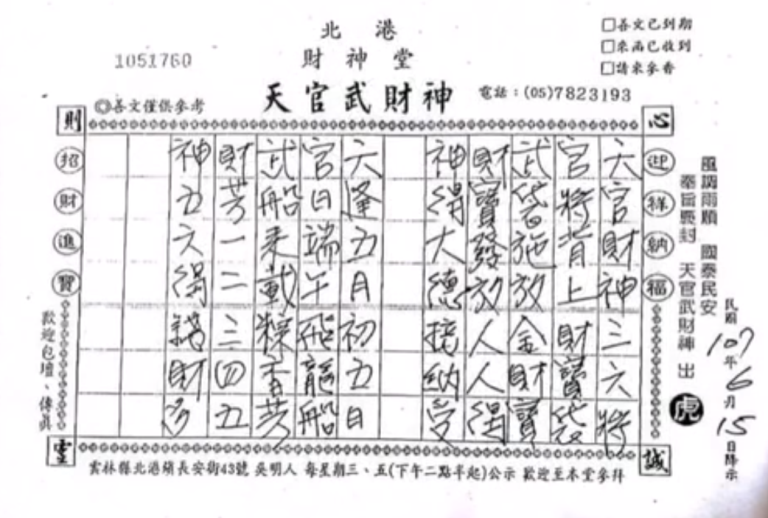 北港
財神堂
天官武財神
1051760
◎善文僅供參考
電話：(05)7823193
□善文已到期
□來函已收到
□請來參香
心誠則靈
迎祥納福
招財進寶
天官財神三六將
官將背上財寶袋
武袋施放金財寶
財寶發放人人得
神得大德接納受
六逢五月初五日
官日端午飛龍船
武船禾載粽香芳
財芳一二三四五
神五六得諸財多
風調雨順 國泰民安
奉旨褒封 天官武財神 出
虎
民國107年6月15日降示
歡迎包壇、傳真
雲林縣北港鎮長安街43號 吳明人 每星期三、五(下午二點半起)公示 歡迎至本堂參拜